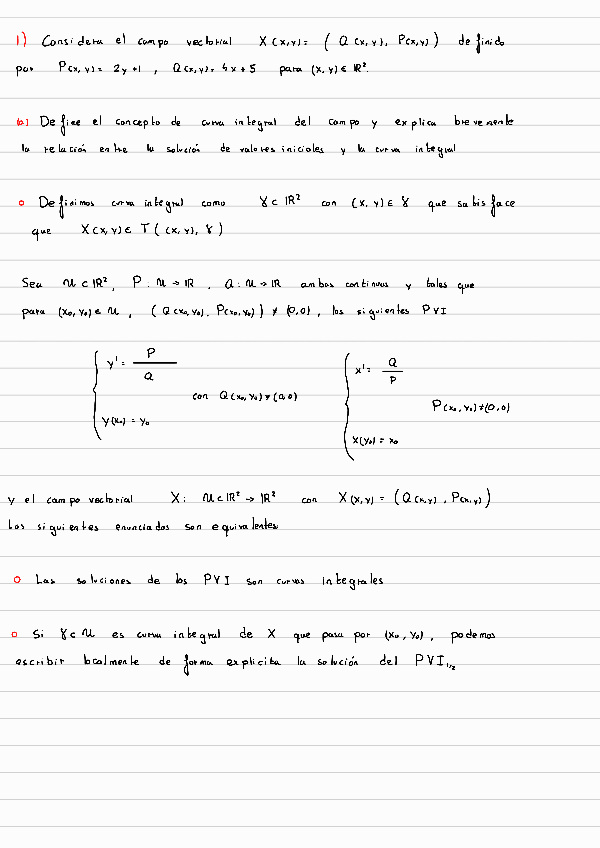 1) Considera el campo vectorial X(x,y) = (Q(x,y), P(x,y)) definido
por P(x,y) = 2y+1, Q(x,y) = 4x+5 para (x,y) ∈ ℝ².
(a) Define el concepto de curva integral del campo y explica brevemente
la relación entre la solución de valores iniciales y la curva integral
○ Definimos curva integral como γ ⊂ ℝ² con (x,y) ∈ γ que satisface
que X(x,y) ∈ T((x,y), γ)
Sea U ⊂ ℝ², P: U → ℝ, Q: U → ℝ ambas continuas y tales que
para (x₀,y₀) ∈ U, (Q(x₀,y₀), P(x₀,y₀)) ≠ (0,0), los siguientes PVI
{ y' = P/Q con Q(x₀,y₀) ≠ (0,0) { x' = Q/P P(x₀,y₀) ≠ (0,0)
y(x₀) = y₀ x(y₀) = x₀
y el campo vectorial X: U ⊂ ℝ² → ℝ² con X(x,y) = (Q(x,y), P(x,y))
Los siguientes enunciados son equivalentes
○ Las soluciones de los PVI son curvas integrales
○ Si γ ⊂ U es curva integral de X que pasa por (x₀,y₀), podemos
escribir localmente de forma explicita la solución del PVI₁/₂